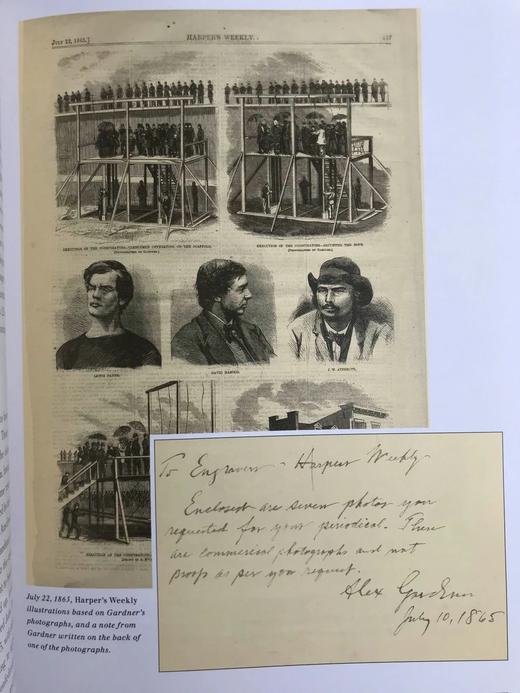 JULY 22, 1865.]
HARPER'S WEEKLY.
457
EXECUTION OF THE CONSPIRATORS—
[PHOTOGRAPHED BY GARDNER.]
EXECUTION OF THE CONSPIRATORS—ADJUSTING THE ROPE.
[PHOTOGRAPHED BY GARDNER.]
LEWIS PAYNE.
DAVID HAROLD.
EXECUTION OF THE CONSPIRATORS
To Engravers - Harpers Weekly
Enclosed are seven photos you
requested for your periodical. These
are commercial photographs and not
proofs as per your request.
Alex Gardner
July 10, 1865
July 22, 1865, Harper's Weekly
illustrations based on Gardner's
photographs, and a note from
Gardner written on the back of
one of the photographs.